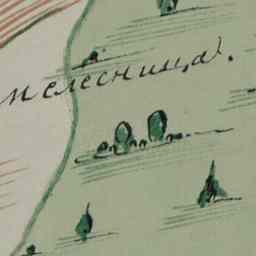 мелесница.